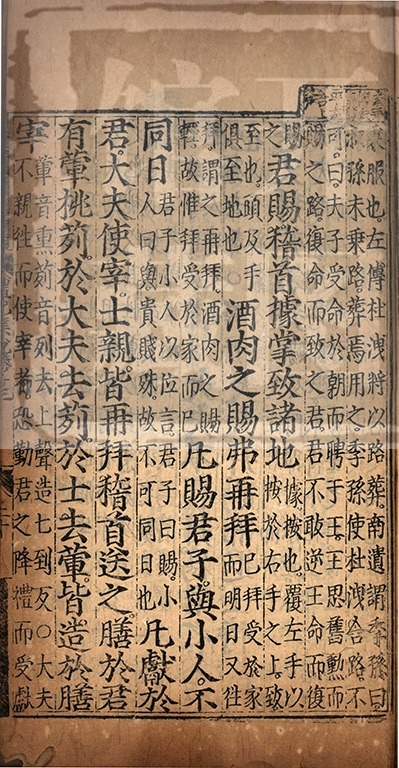 服也。左傳杜洩將以路葬。南遺謂季孫曰。
孫未乘路。葬焉用之。季孫使杜洩舍路。不
可。曰。夫子受命於朝而聘于王。王思舊勳而
賜之路。復命而致之君。君不敢逆王命而復
賜之
君賜稽首據掌致諸地
據按也。覆左手以
按於右手之上。致
至也。頭及手
俱至地也
酒肉之賜弗再拜
已拜受於家
而明日又往
拜謂之再拜。酒肉之賜
輕故惟拜受於家而已
凡賜君子。與小人。不
同日
君子小人以位言。君子曰賜。小
人曰與。貴賤殊。故不可同日也
凡獻於
君。大夫使宰士親。皆再拜稽首送之。膳於君
有葷桃茢。於大夫去茢。於士去葷。皆造於膳
宰
葷音熏茢音列去上聲造七到反○大夫
不親往而使宰者。恐勤君之降禮而受獻